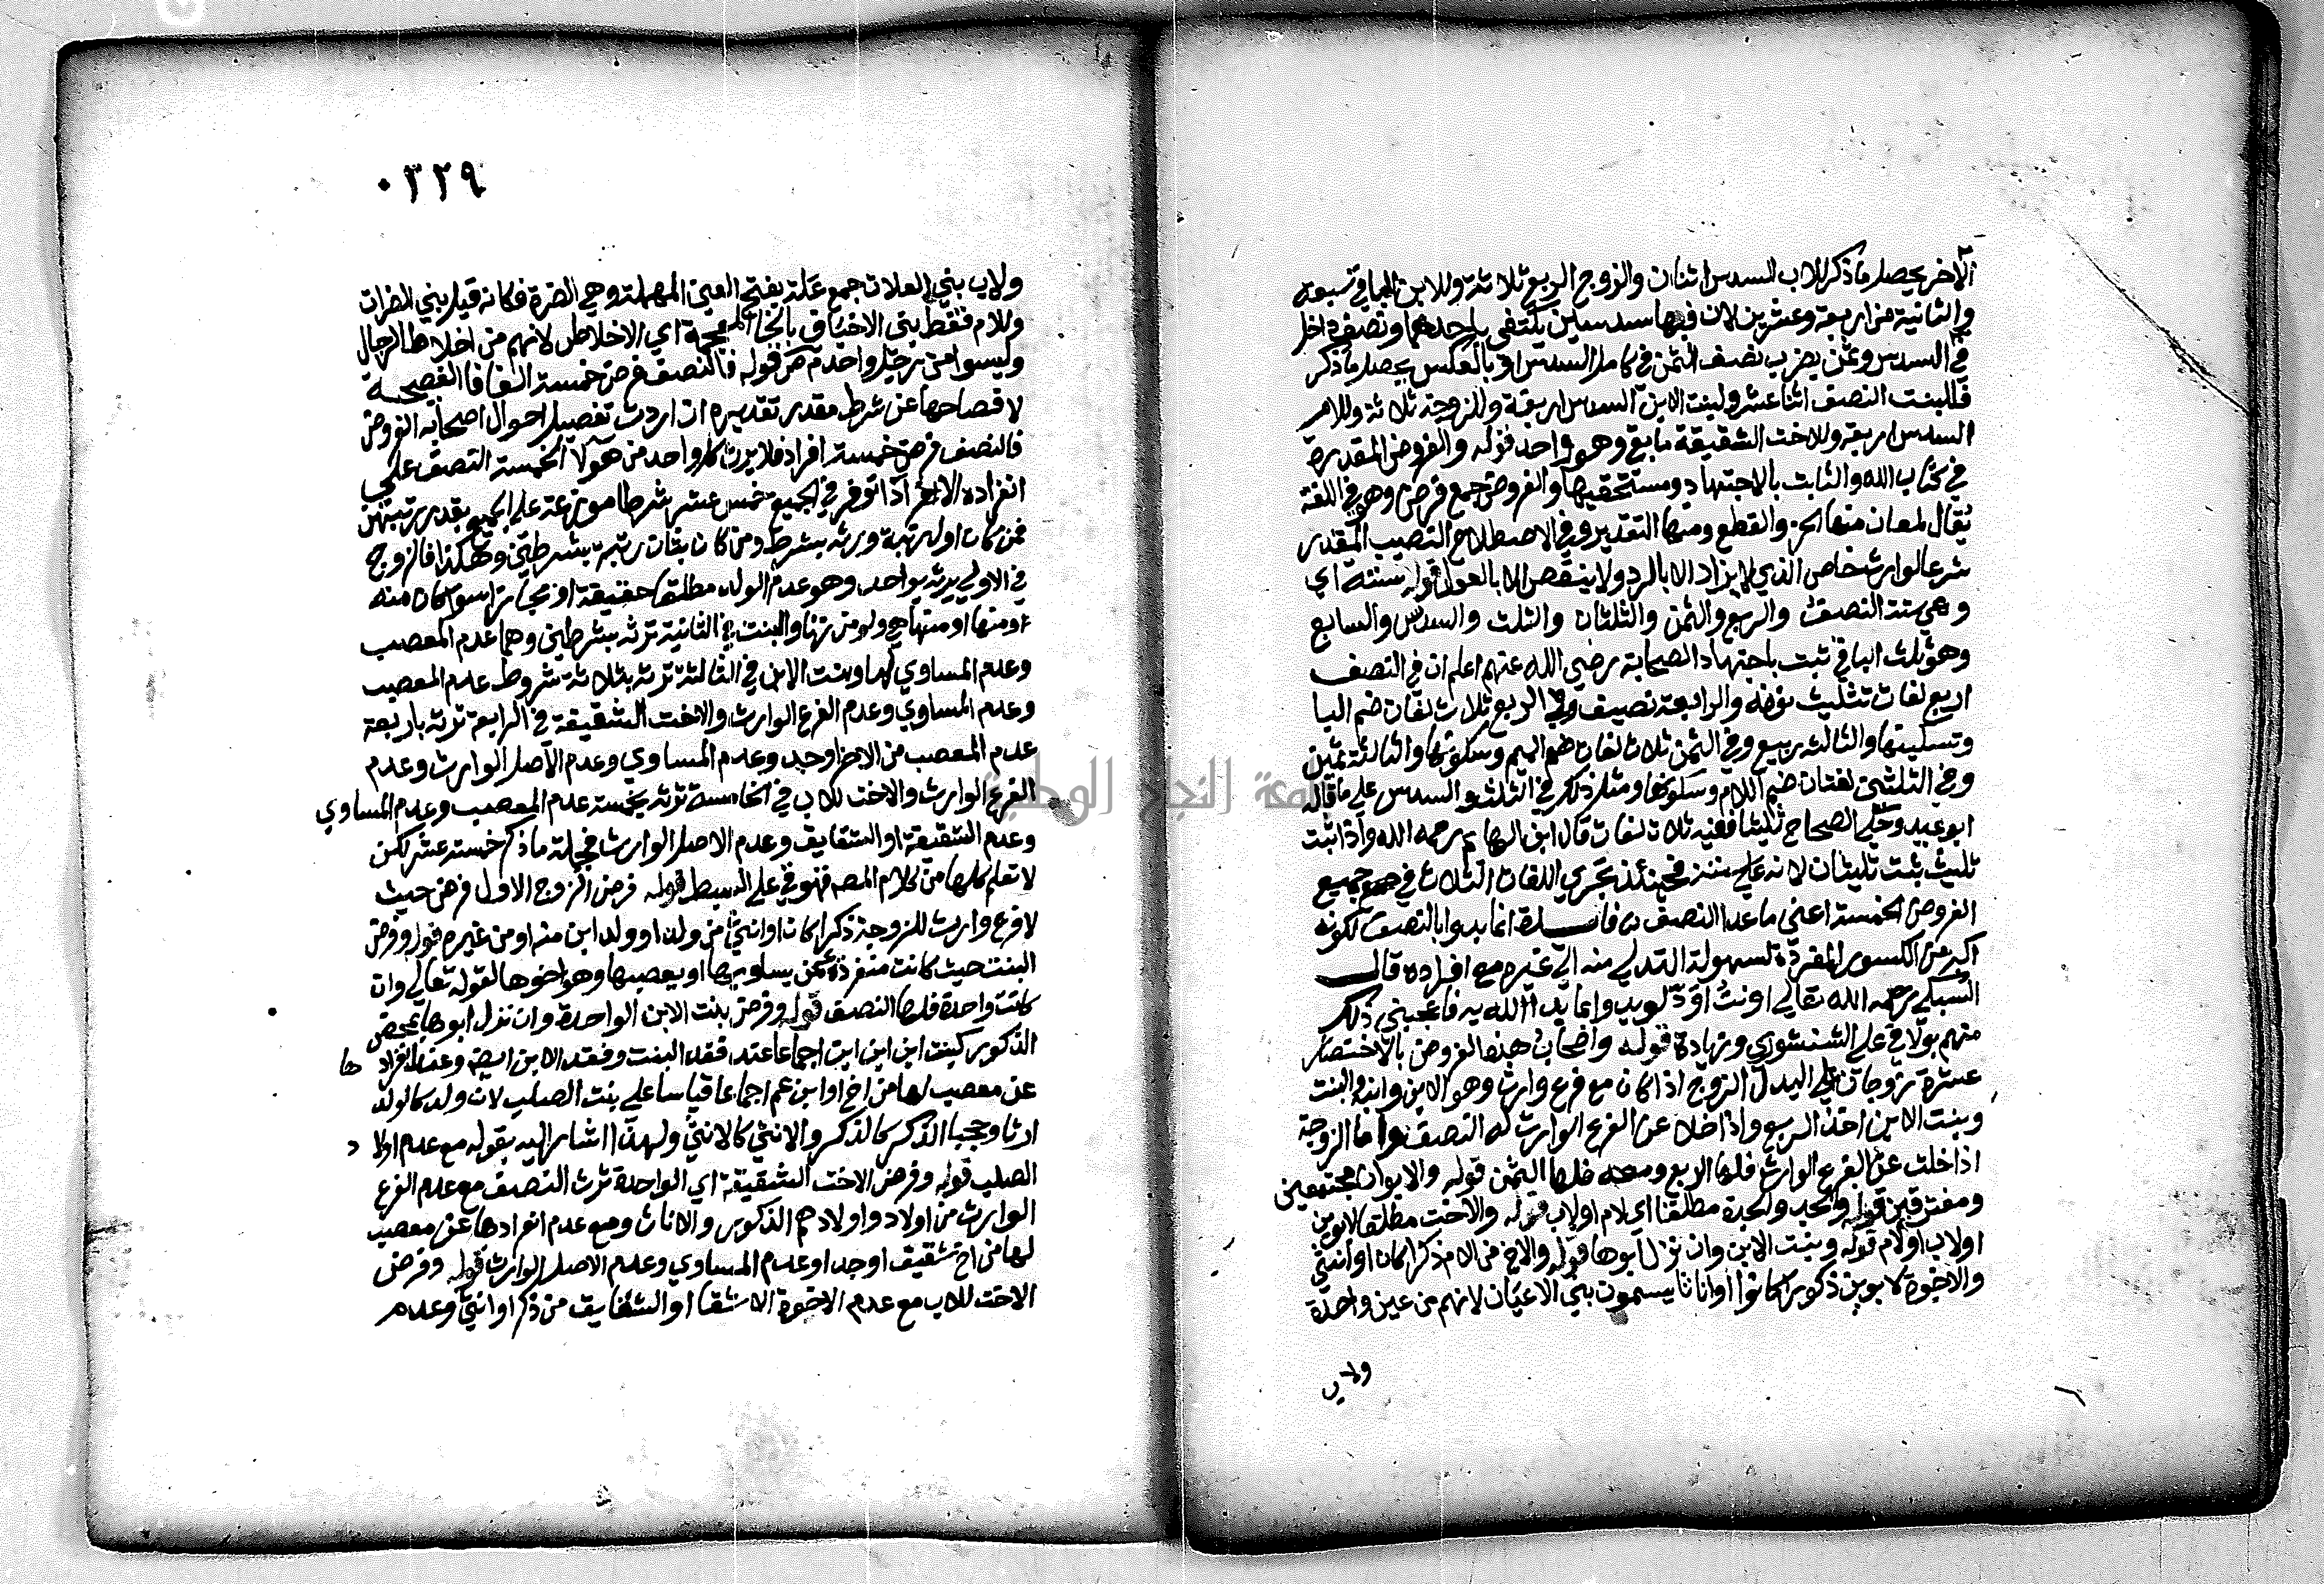 الآخر يحصل ما ذكر للاب السدس اثنان والزوج الربع ثلاثة وللابن الباقي سبعة
والثانية من اربعة وعشرين لان فيها سدسين يكتفى باحدهما ونصف داخل
في السدس وثمن يضرب نصف الثمن في كامل السدس او بالعكس يحصل ما ذكر
فللبنت النصف اثنا عشر ولبنت الابن السدس اربعة وللزوجة ثلاثة وللام
السدس اربعة وللاخت الشقيقة ما بقي وهو واحد قوله والفروض المقدرة
في كتاب الله والثابت بالاجتهاد ومستحقيها والفروض جمع فرض وهو في اللغة
يقال لمعان منها الحز والقطع ومنها التقدير وفي الاصطلاح النصيب المقدر
شرعا لوارث خاص الذي لا يزاد الا بالرد ولا ينقص الا بالعول قوله ستة اي
وهي ستة النصف والربع والثمن والثلثان والثلث والسدس والسابع
وهو ثلث الباقي ثبت باجتهاد الصحابة رضي الله عنهم اعلم ان في النصف
اربع لغات تثليث نونه والرابعة نصيف وفي الربع ثلاث لغات ضم البا
وتسكينها والثالثة ربيع وفي الثمن ثلاث لغات ضم الميم وسكونها والثالثة ثمين
وفي الثلثين لغتان ضم اللام وسكونها ومثل ذلك في الثلث والسدس على ما قاله
ابو عبيد وحكى الصحاح ثليثا ففيه ثلاث لغات قال ابن الهايم رحمه الله واذا ثبت
ثليث ثبت ثليثان لانه على فحينئذ تجري اللغات الثلاث في جميع
الفروض الخمسة اعني ما عدا النصف فايـــدة انما بدوا بالنصف لكونه
اكبر من الكسور المفردة لسهولة التدلي منه الي غيره مع افراده قالـــ
السبكي رحمه الله تعالي او نث او ذ لو يد وانما يد الله به فاعجبني ذلك
منهم بولاقي على الشنشوري وزيادة قوله واصحاب هذه الفروض بالاختصار
عشرة زوجان علي البدل الزوج اذا كان مع فرع وارث وهو الابن وابنه والبنت
وبنت الابن اخذ الربع واذا خلا عن الفرع الوارث له النصف واما الزوجة
اذا خلت عن الفرع الوارث فلها الربع ومعه فلها الثمن قوله والابوان مجتمعين
ومفترقين قوله والجد والجدة مطلقا اي لام اولاب قوله والاخت مطلقا لابوين
اولاب اولام قوله وبنت الابن وان نزل ابوها قوله والاخ من الام ذكرا كان او انثى
والاخوة لابوين ذكورا كانوا او اناثا يسمون بني الاعيان لانهم من عين واحدة
ولاب
٠٣٢٩
ولاب بني العلات جمع علة بفتح العين المهملة وهي الضرة فكانه قيل بني الضرات
وللام فقط بني الاخياف بالخا المعجمة اي الاخلاط لانهم من اخلاط الرجال
وليسوا من رجل واحد قوله فالنصف فرض خمسة الفا فا الفصيحة
لافصاحها عن شرط مقدر تقديره ان اردت تفصيل احوال اصحابه الفروض
فالنصف فرض خمسة افراد فلا يرث كل واحد من هولا الخمسة النصف علي
انفراده الا اذا توفر في الجميع خمس عشر شرطا موزعة على الجميع بقدر رتبتهن
فمن كان اول رتبة ورثه بشرط ومن كان بثان رتبة بشرطين وهكذا فالزوج
في الاولى يرثه بواحد وهو عدم الولد مطلقا حقيقة او مجازا سوا كان منه
او منها او منهما ولو من زنا والبنت في الثانية ترثه بشرطين وهما عدم المعصب
وعدم المساوي لها وبنت الابن في الثالثة ترثه بثلاثة شروط عدم المعصب
وعدم المساوي وعدم الفرع الوارث والاخت الشقيقة في الرابعة ترثه باربعة
عدم المعصب من الاخ او جد وعدم المساوي وعدم الاصل الوارث وعدم
الفرع الوارث والاخت للاب في الخامسة ترثه بخمسة عدم المعصب وعدم المساوي
وعدم الشقيقة او الشقايق وعدم الاصل الوارث فجملة ما ذكر خمسة عشر لكن
لا تعلم كلها من كلام المص فهو في على البسيط قوله فرض الزوج الاول فرض حيث
لا فرع وارث للزوجة ذكرا كان او انثى من ولد او ولد ابن منه او من غيره قوله وفرض
البنت حيث كانت منفردة عمن يساويها او يعصبها وهو اخوها لقوله تعالي وان
كانت واحدة فلها النصف قوله وفرض بنت الابن الواحدة وان نزل ابوها بمحض
الذكور كبنت ابن ابن ابن اجماعا عند فقد البنت وفقد الابن ايضا وعند انفرادها
عن معصب لها من اخ او ابن عم اجماعا قياسا على بنت الصلب لان ولد كالولد
ارثا وحجبا الذكر كالذكر والانثى كالانثى ولهذا اشار اليه بقوله مع عدم اولاد
الصلب قوله وفرض الاخت الشقيقة اي الواحدة ترث النصف مع عدم الفرع
الوارث من اولاد واولادهم الذكور والاناث ومع عدم انفرادها عن معصب
لها من اخ شقيق او جد او عدم المساوي وعدم الاصل الوارث قوله وفرض
الاخت للاب مع عدم الاخوة الاشقا او الشقايق من ذكر او انثى وعدم
جامعة النجاح الوطنية